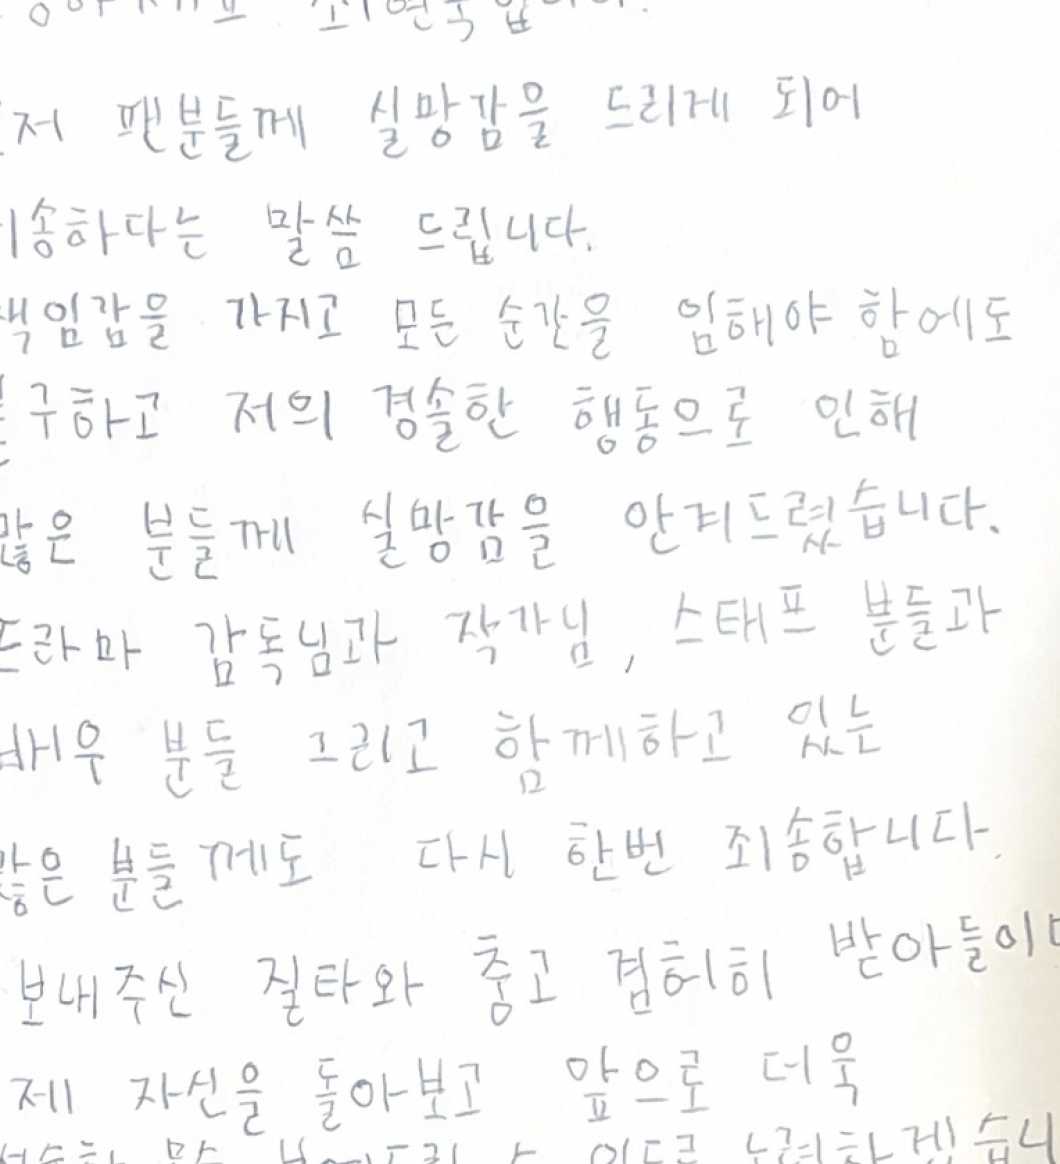 팬분들께 실망감을 드리게 되어
말씀 드립니다.
가지고 모든 순간을 임해야 함에도
저의 경솔한 행동으로 인해
많은 분들께 실망감을 안겨드렸습니다.
드라마 감독님과 작가님, 스태프 분들과
배우 분들 그리고 함께하고 있는
많은 분들께도 다시 한번 죄송합니다.
보내주신 질타와 충고 겸허히
제 자신을 돌아보고 앞으로 더욱